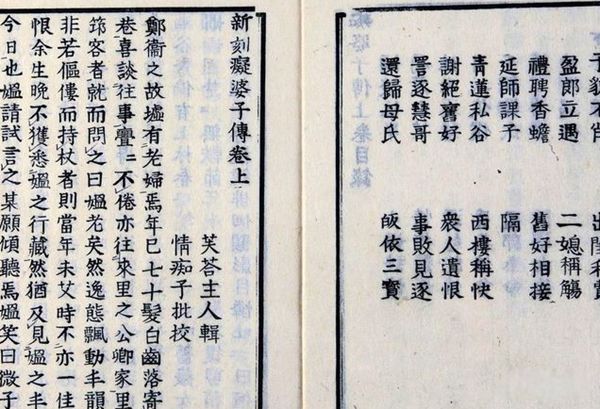 不肖
盈郎立遇 二媳稱觴
禮聘香蟾 舊好相接
延師課子 隔
青蓮私谷 西樓稱快
謝絕奮好 衆人遺恨
詈逐慧哥 事敗見逐
還歸母氏 皈依三寶
癡婆子傳上卷目錄
新刻癡婆子傳卷上
芙蓉主人輯
情痴子批校
鄭衛之故墟有老婦焉年已七十髮白齒落寄
巷喜談往事亹〻不倦亦往來里之公卿家里
筇客者就而問之曰媼老矣然逸態飄動丰韻
非若傴僂而持杖者則當年未艾時不亦一佳
恨余生晚不獲悉媼之行藏然猶及見媼之丰
今日也媼請試言之某願傾聽焉媼笑曰微子